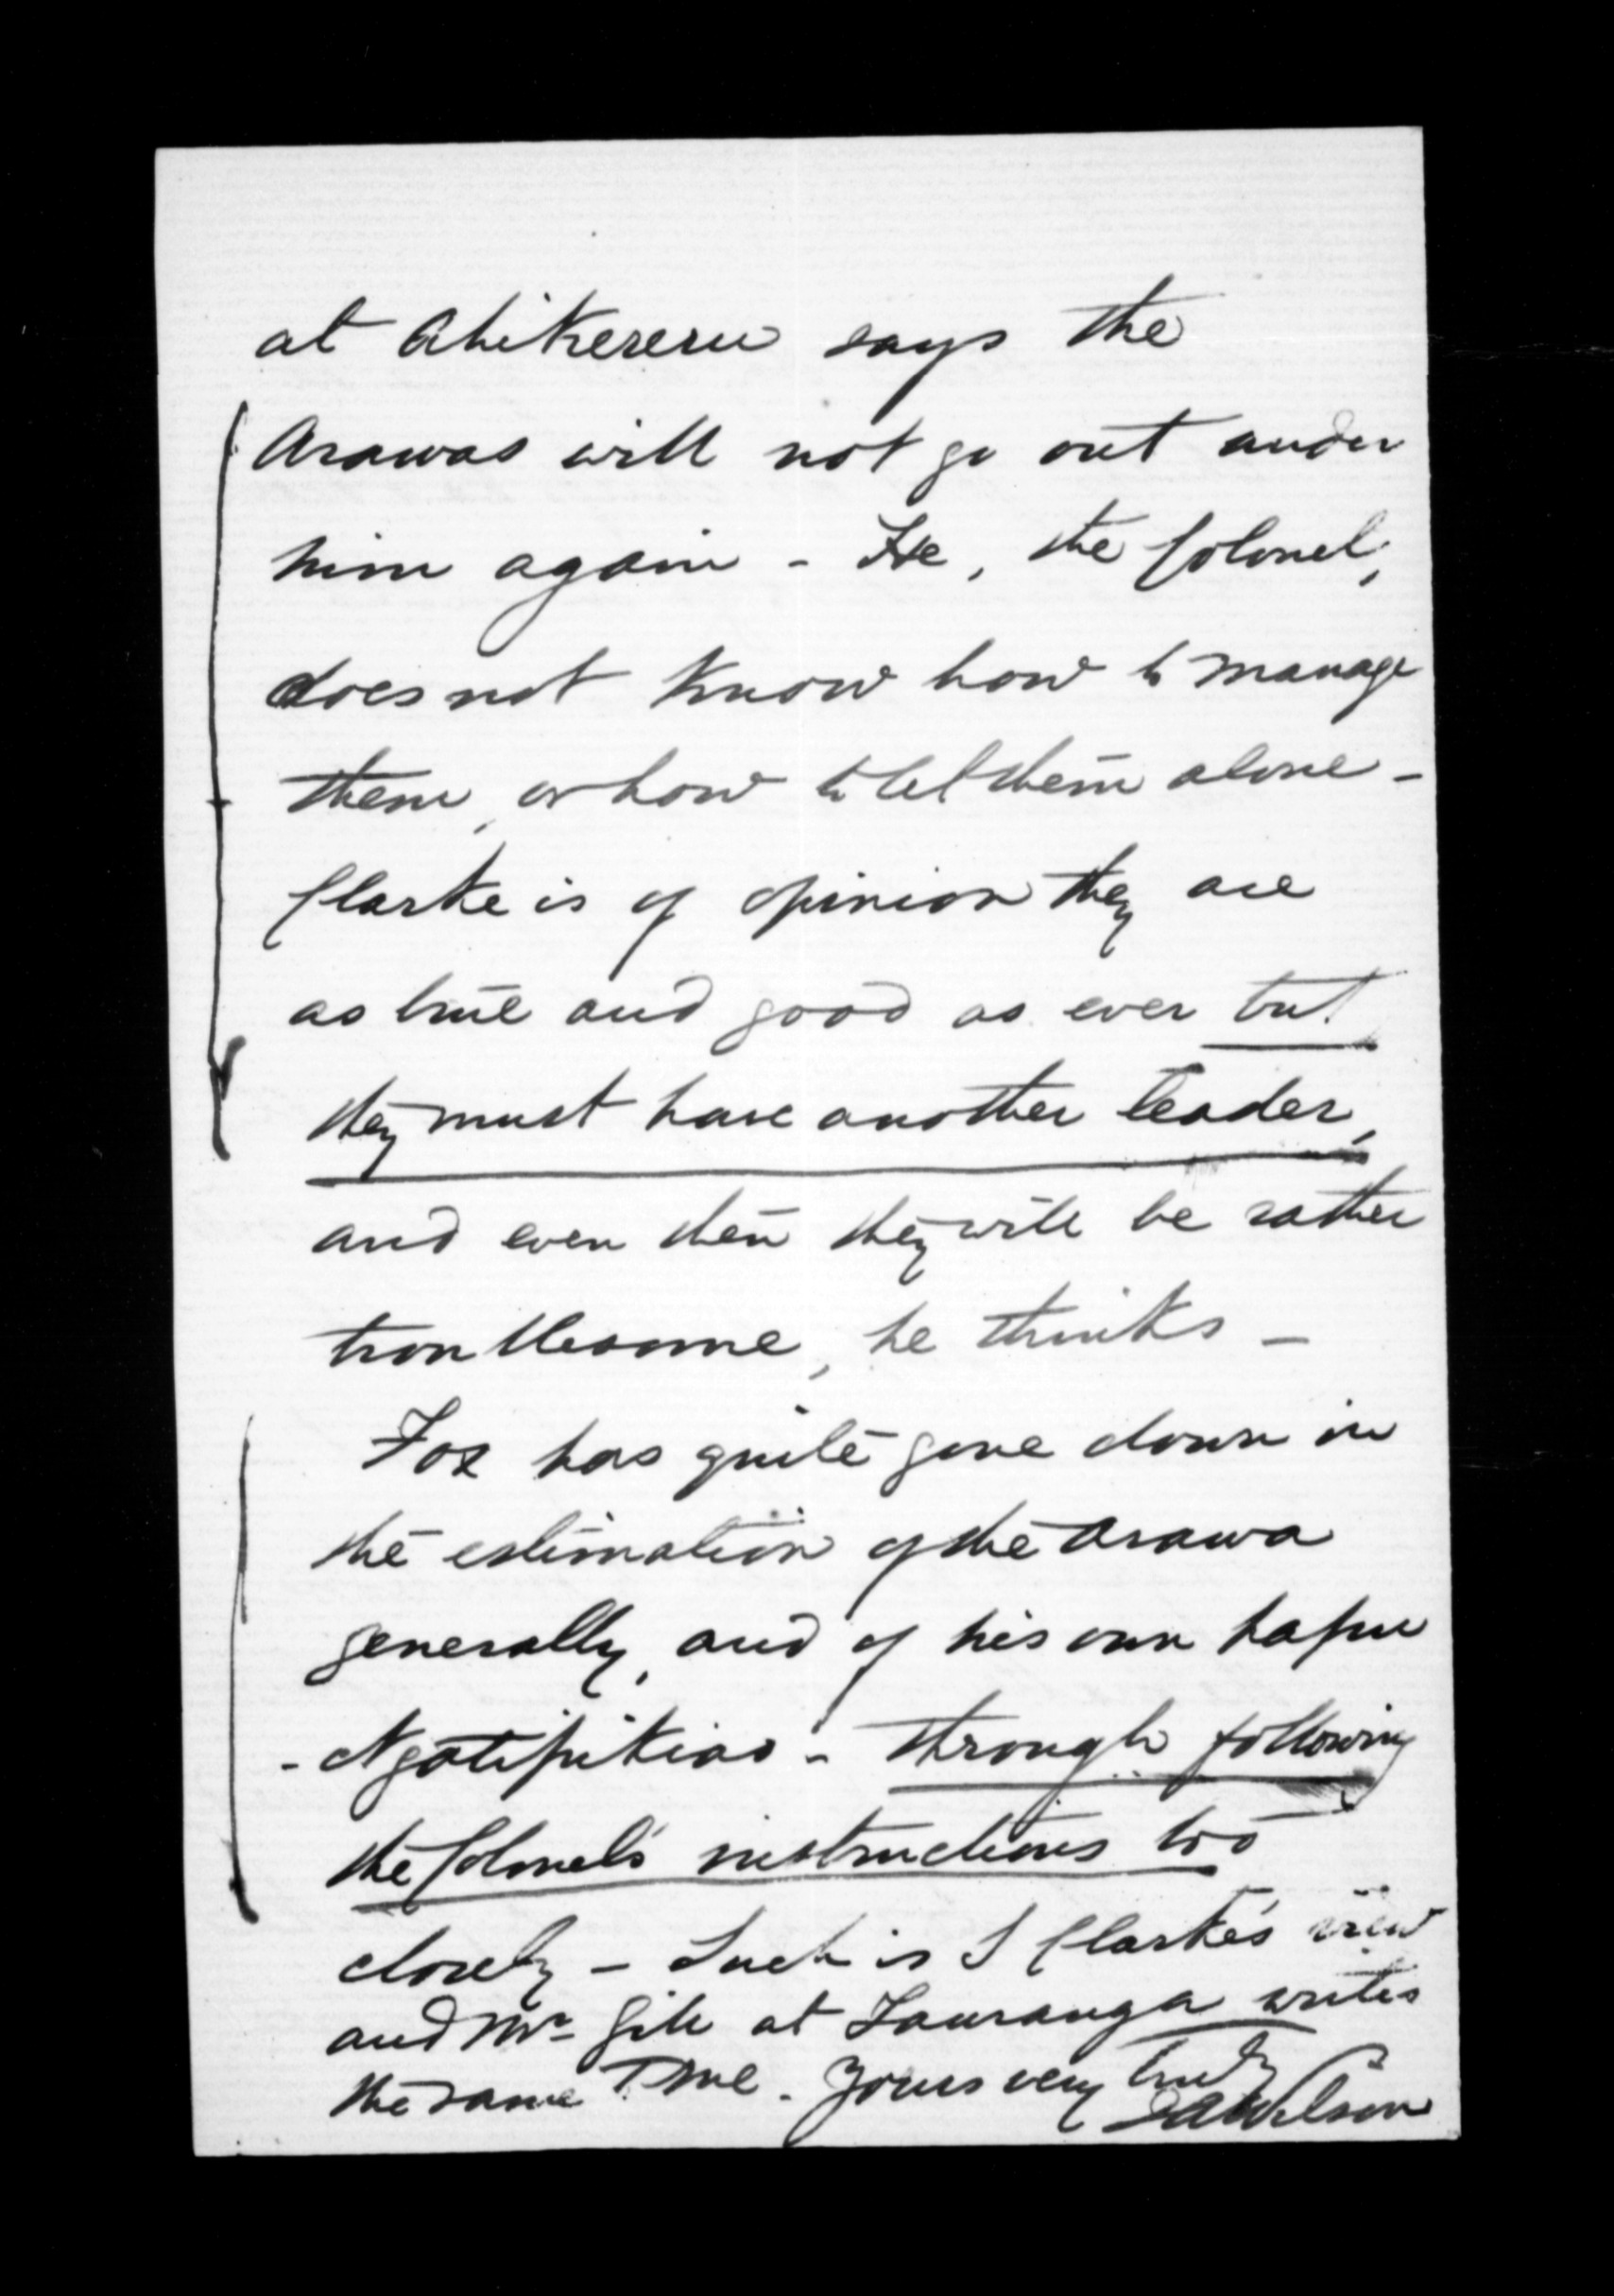 at Ahikereru says the
Arawas will not go out under
him again - He, the Colonel,
does not know how to manage
them, or how to let them alone -
Clarke is of opinion they are
as true and good as ever but
they must have another leader,
and even then they will be rather
troublesome, he thinks -
Fox has quite gone down in
the estimation of the Arawa
generally, and of his own hapu
- Ngatipikiao - through following
the Colonel's instructions too
closely - Such is Clarke's view
and Mr Gill at Tauranga writes
the same. Yours very truly
JAWilson